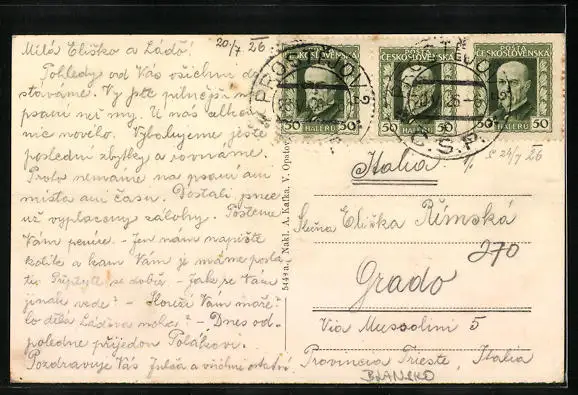 20/7 26
Milá Eliško a Láďo!
Pohledy od Vás všichni do
stáváme. Vy jste pilnější na
psaní než my. U nás
nic nového. Vybalujeme ještě
poslední zbytky a rovnáme.
Proto nemáme na psaní ani
místa ani času. Dostali jsme
už vyplaceny zálohy. Pošleme
Vám peníze. - Jen nám napište
kolik a kam Vám je máme posla
ti. se dobře. - Jak se Vám
jinak vede? - Slouží Vám moře?
Co dělá Láďova noha? - Dnes od-
poledne přijedou Polákovi.
Pozdravuje Vás a všichni ostatní.
5449 a.-j. Nakl. A. Kafka, V. Opatov
POŠTA
ČESKOSLOVENSKÁ
50 50
HALÉŘŮ
POŠTA
ČESKOSLOVENSKÁ
50 50
HALÉŘŮ
POŠTA
ČESKOSLOVENSKÁ
50
HALÉŘŮ
Č.S.P.
Italia
24/7 26
Slečna Eliška Římská
270
Grado
Via Mussolini 5
Provincia Trieste, Italia
BLANSKO